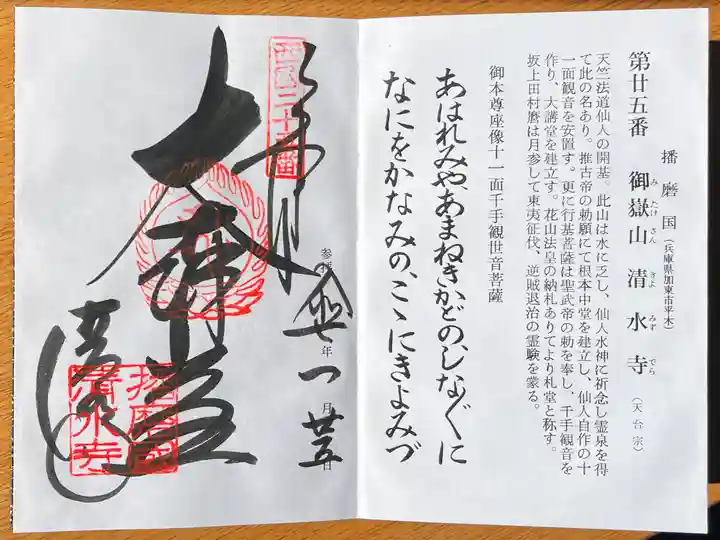 播磨国(兵庫県加東市平木)
第廿五番 御嶽山 清水寺(天台宗)
みたけさん きよみずでら
天竺法道仙人の開基。此山は水に乏し、仙人水神に祈念し霊泉を得
て此の名あり。推古帝の勅願にて根本中堂を建立し、仙人自作の十
一面観音を安置す。更に行基菩薩は聖武帝の勅を奉し、千手観音を
作り、大講堂を建立す。花山法皇の納札ありてより札堂と称す。
坂上田村麿は月参して東夷征伐、逆賊退治の霊験を蒙る。
御本尊座像十一面千手観世音菩薩
あはれみや、あまねきかどの、しな〴〵に
なにをかなみの、こゝにきよみづ
西国二十五番
参拝
年
一月廿五日
播磨国
清水寺